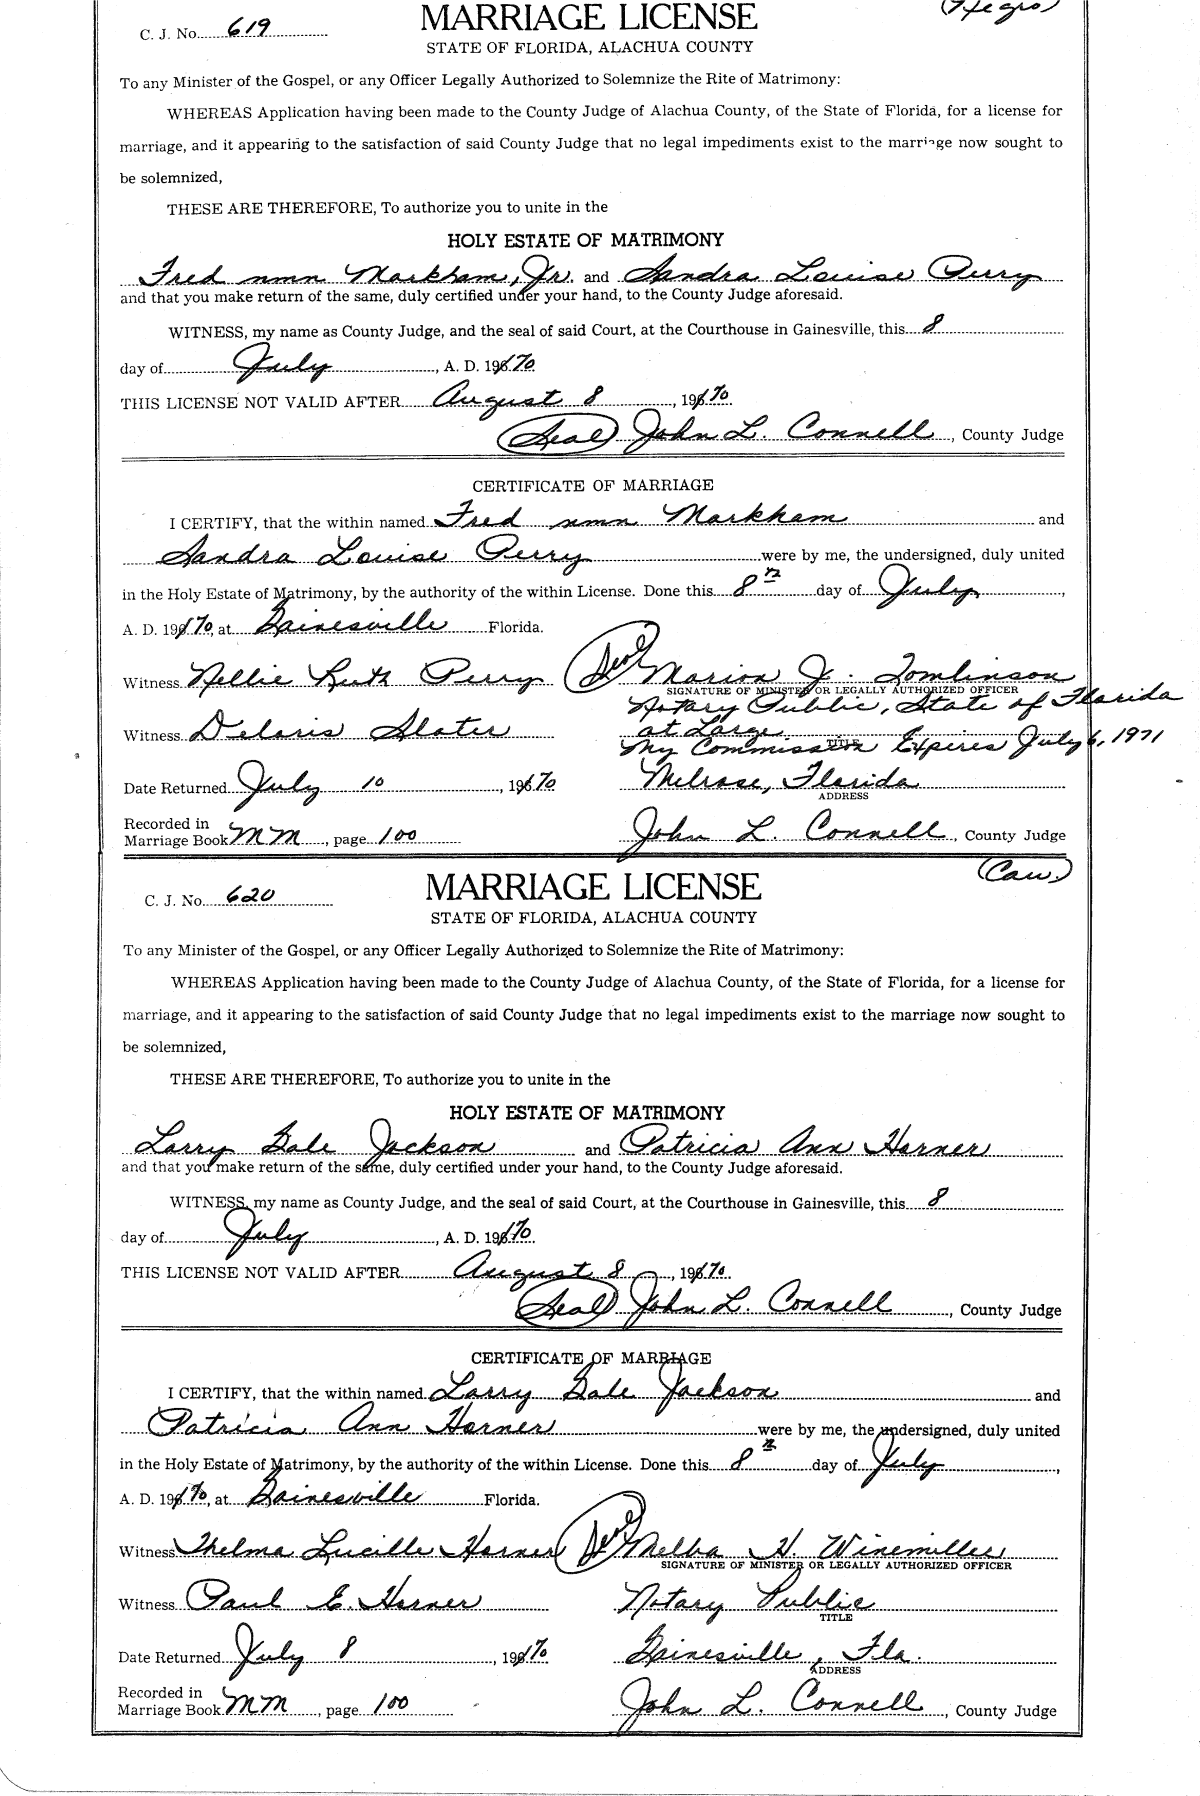 (Negro)
C. J. No. 619
MARRIAGE LICENSE
STATE OF FLORIDA, ALACHUA COUNTY
To any Minister of the Gospel, or any Officer Legally Authorized to Solemnize the Rite of Matrimony:
WHEREAS Application having been made to the County Judge of Alachua County, of the State of Florida, for a license for
marriage, and it appearing to the satisfaction of said County Judge that no legal impediments exist to the marriage now sought to
be solemnized,
THESE ARE THEREFORE, To authorize you to unite in the
HOLY ESTATE OF MATRIMONY
Fred nmn Markham, Jr. and Sandra Louise Perry
and that you make return of the same, duly certified under your hand, to the County Judge aforesaid.
WITNESS, my name as County Judge, and the seal of said Court, at the Courthouse in Gainesville, this 8
day of July, A. D. 1970
THIS LICENSE NOT VALID AFTER August 8, 1970.
(Seal) John L. Connell, County Judge
CERTIFICATE OF MARRIAGE
I CERTIFY, that the within named Fred nmn Markham and
Sandra Louise Perry were by me, the undersigned, duly united
in the Holy Estate of Matrimony, by the authority of the within License. Done this 8th day of July,
A. D. 1970, at Gainesville Florida.
Witness Nellie Ruth Perry (Seal) Marion J. Tomlinson
SIGNATURE OF MINISTER OR LEGALLY AUTHORIZED OFFICER
Notary Public, State of Florida
Witness Deloris Slater at Large
My Commission Expires July 6, 1971
TITLE
Date Returned July 10, 1970 Melrose, Florida
ADDRESS
Recorded in
Marriage Book MM, page 100 John L. Connell, County Judge
(Cau.)
C. J. No. 620
MARRIAGE LICENSE
STATE OF FLORIDA, ALACHUA COUNTY
To any Minister of the Gospel, or any Officer Legally Authorized to Solemnize the Rite of Matrimony:
WHEREAS Application having been made to the County Judge of Alachua County, of the State of Florida, for a license for
marriage, and it appearing to the satisfaction of said County Judge that no legal impediments exist to the marriage now sought to
be solemnized,
THESE ARE THEREFORE, To authorize you to unite in the
HOLY ESTATE OF MATRIMONY
Larry Gale Jackson and Patricia Ann Horner
and that you make return of the same, duly certified under your hand, to the County Judge aforesaid.
WITNESS, my name as County Judge, and the seal of said Court, at the Courthouse in Gainesville, this 8
day of July, A. D. 1970.
THIS LICENSE NOT VALID AFTER August 8, 1970.
(Seal) John L. Connell, County Judge
CERTIFICATE OF MARRIAGE
I CERTIFY, that the within named Larry Gale Jackson and
Patricia Ann Horner were by me, the undersigned, duly united
in the Holy Estate of Matrimony, by the authority of the within License. Done this 8th day of July,
A. D. 1970, at Gainesville Florida.
Witness Thelma Lucille Horner (Seal) Melba H. Winemiller
SIGNATURE OF MINISTER OR LEGALLY AUTHORIZED OFFICER
Witness Paul E. Horner Notary Public
TITLE
Date Returned July 8, 1970 Gainesville, Fla.
ADDRESS
Recorded in
Marriage Book MM, page 100 John L. Connell, County Judge